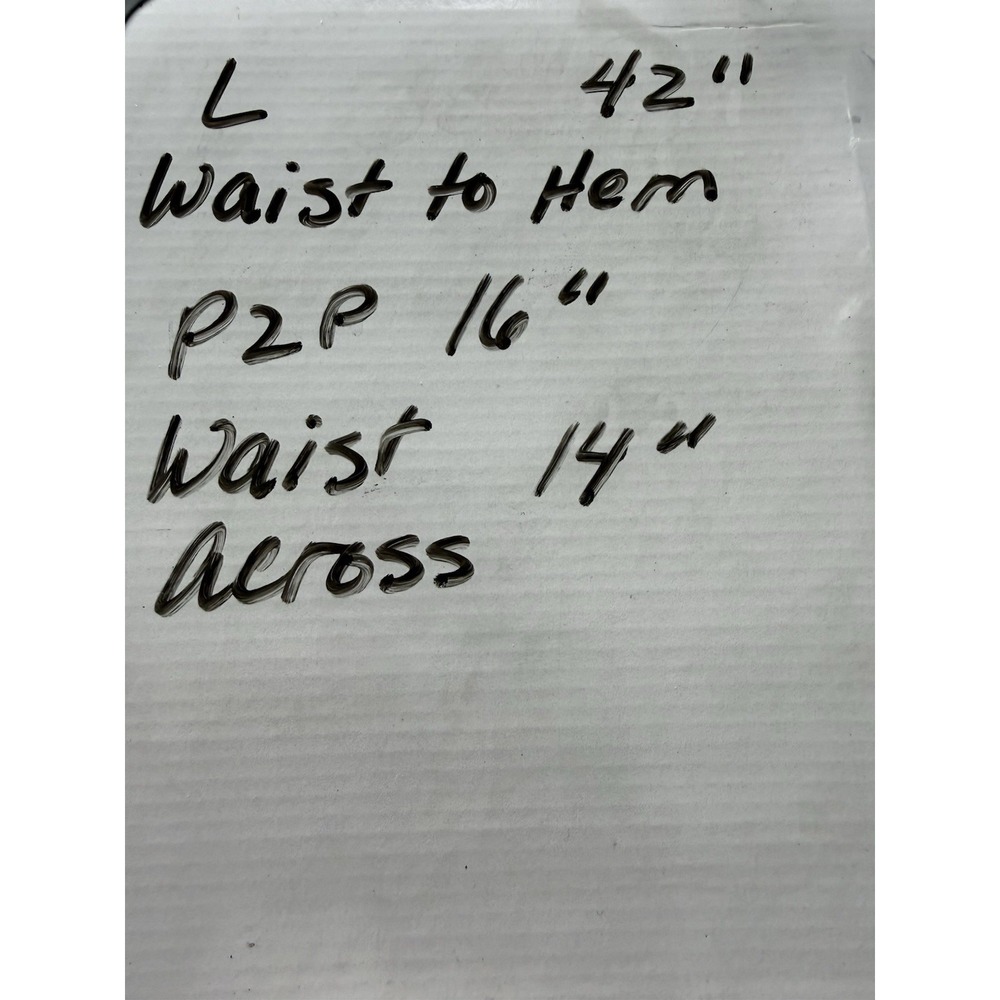 L 42"
Waist to Hem
P2P 16"
Waist 14"
Across